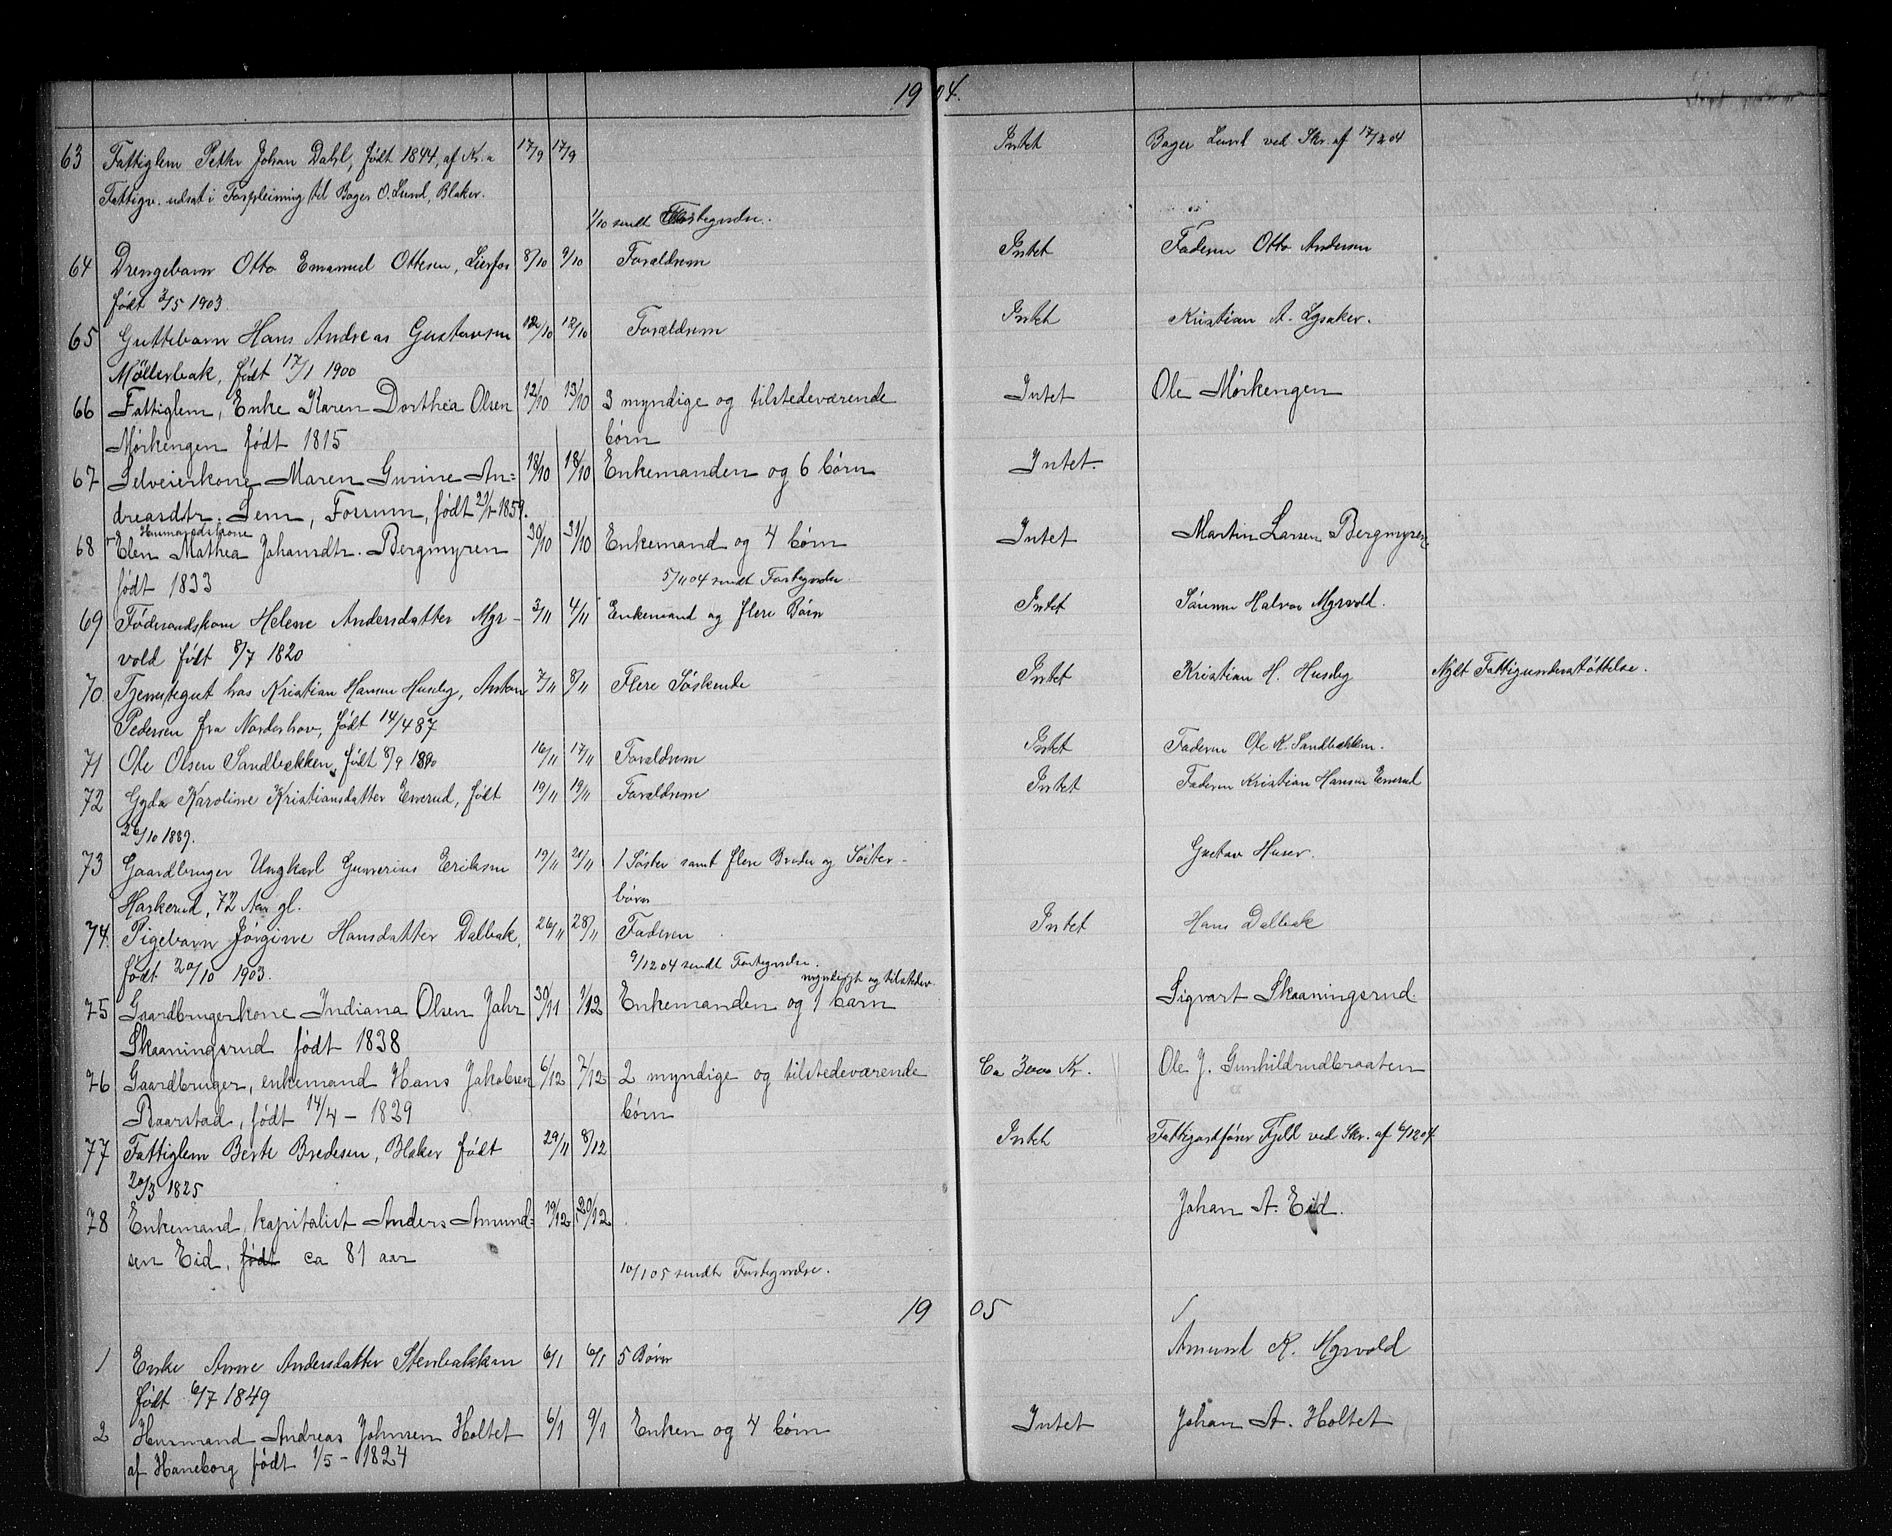 1904.
63 Fattiglem Petter Johan Dahl, født 1844, af Kr.a 17/9 17/9 Intet Bager Lund ved Skr. af 17/9 04
Fattigv. udsat i Forpleining til Bager O. Lund, Blaker.
1/10 sendt Fortegnelse.
64 Drengebarn Otto Emanuel Ottesen, Lierfos 8/10 9/10 Forældrene Intet Faderen Otto Andersen
født 3/5 1903.
65 Guttebarn Hans Andreas Gustavsen 12/10 12/10 Forældrene Intet Kristian A. Lysaker.
Møllerbak, født 17/1 1900
66 Fattiglem, Enke Karen Dorthea Olsen 12/10 13/10 3 myndige og tilstedeværende Intet Ole Mørkengen
Mørkengen født 1815 børn
67 Selveierkone Maren Gurine An= 18/10 18/10 Enkemanden og 6 børn Intet.
dreasdtr. Lem, Fossum, født 1859.
Husmandskone
68 Elen Mathea Johansdtr. Bergmyren 30/10 31/10 Enkemand og 4 børn Intet Martin Larsen Bergmyren
født 1833 5/11 04 sendt Fortegnelse.
69 Føderaadskone Helene Andersdatter Myr- 3/11 4/11 Enkemand og flere Børn Intet Sønnen Halvor Myrvold.
vold født 8/7 1820
70 Tjenestegut hos Kristian Hansen Huseby, Anton 7/11 8/11 Flere Søskende Intet Kristian H. Huseby Nydt Fattigunderstøttelse.
Pedersen fra Norderhov, født 14/4 87
71 Ole Olsen Sandbækken, født 8/9 1890 16/11 17/11 Forældrene Intet Faderen Ole K. Sandbækken.
72 Gyda Karoline Kristiansdatter Enerud, født 19/11 19/11 Forældrene Intet Faderen Kristian Hansen Enerud
26/10 1889.
73 Gaardbruger Ungkarl Gunerius Eriksen 19/11 21/11 1 Søster samt flere Broder og Søster- Gustav Huser.
Haskerud, 72 Aar gl. børn
74. Pigebarn Jørgine Hansdatter Dalbak, 26/11 28/11 Faderen Intet Hans Dalbak
født 20/10 1903. 9/12 04 sendt Fortegnelse.
myndigt og tilstedev.
75 Gaardbrugerkone Indiana Olsen Jahr 30/11 1/12 Enkemanden og 1 barn Sigvart Skaaningsrud.
Skaaningsrud født 1838
76 Gaardbruger, enkemand Hans Jakobsen 6/12 7/12 2 myndige og tilstedeværende Ca 3000 Kr. Ole J. Gunhildrudbraaten
Baarstad, født 14/4 - 1829 børn
77 Fattiglem Berte Bredesen, Blaker født 29/11 8/12 Intet Fattigforstander Fjeld ved Skr. af 6/12 04
20/3 1825
78 Enkemand, kapitalist Anders Amund= 19/12 20/12 Johan A. Eid.
sen Eid, født ca 81 aar
10/1 05 sendt Fortegnelse.
1905
1 Enke Anne Andersdatter Stenbækken 6/1 6/1 5 Børn Amund K. Myrvold
født 6/7 1849
2 Husmand Andreas Johnsen Holtet 6/1 9/1 Enken og 4 børn Intet Johan A. Holtet
af Haneborg født 1/5 - 1824